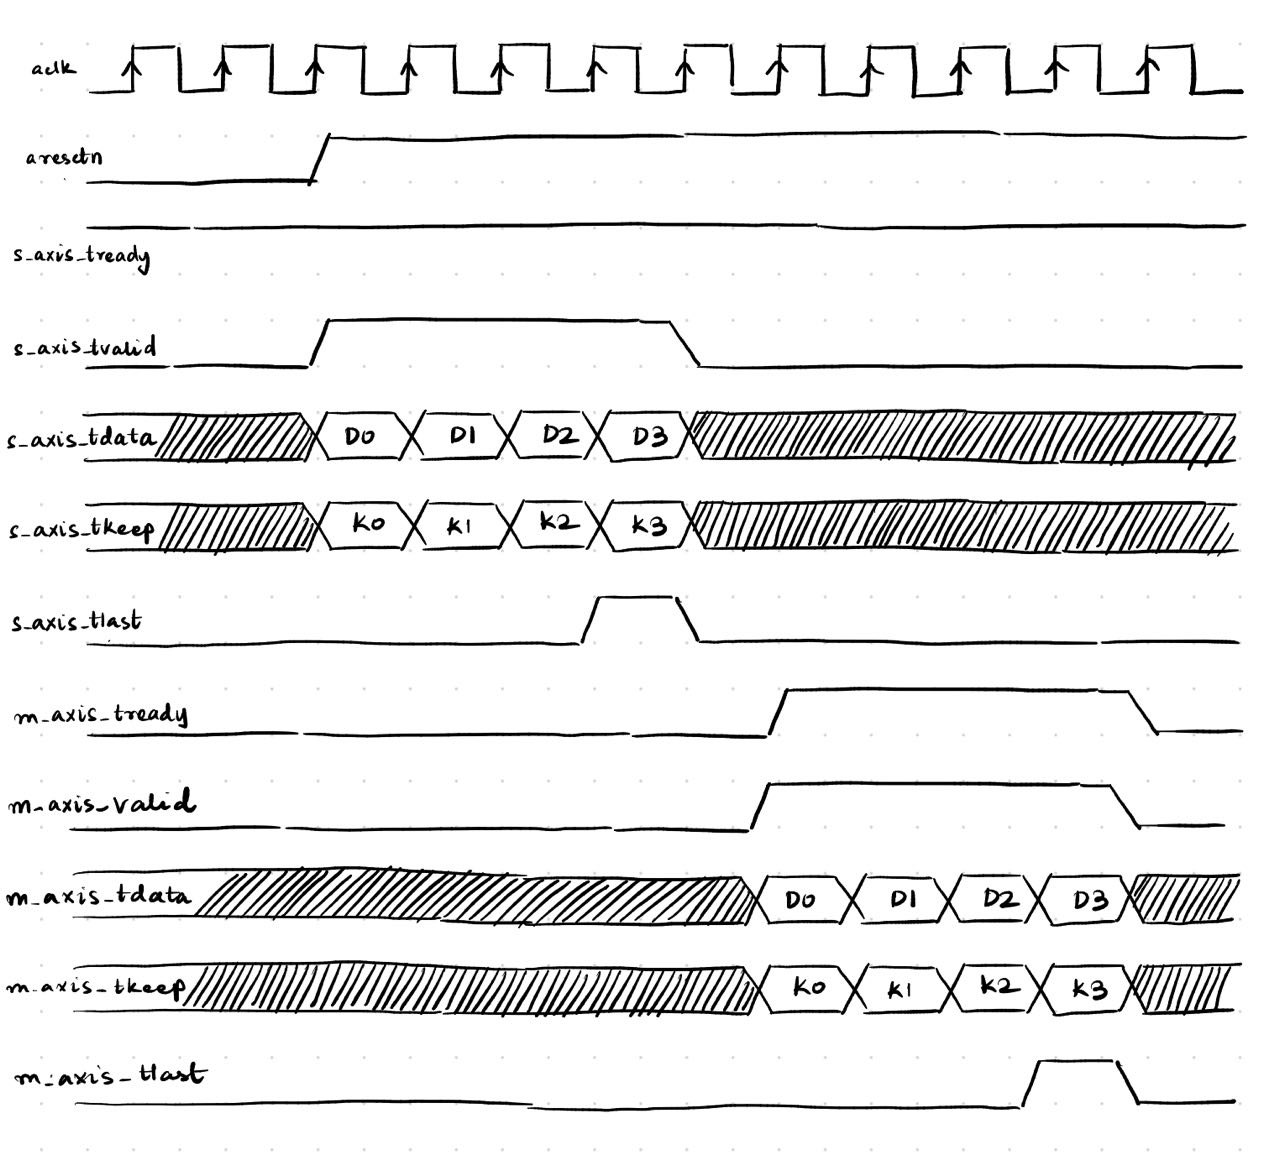 aclk
aresetn
s_axis_tready
s_axis_tvalid
s_axis_tdata D0 D1 D2 D3
s_axis_tkeep K0 K1 K2 K3
s_axis_tlast
m_axis_tready
m_axis_valid
m_axis_tdata D0 D1 D2 D3
m_axis_tkeep K0 K1 K2 K3
m_axis_tlast